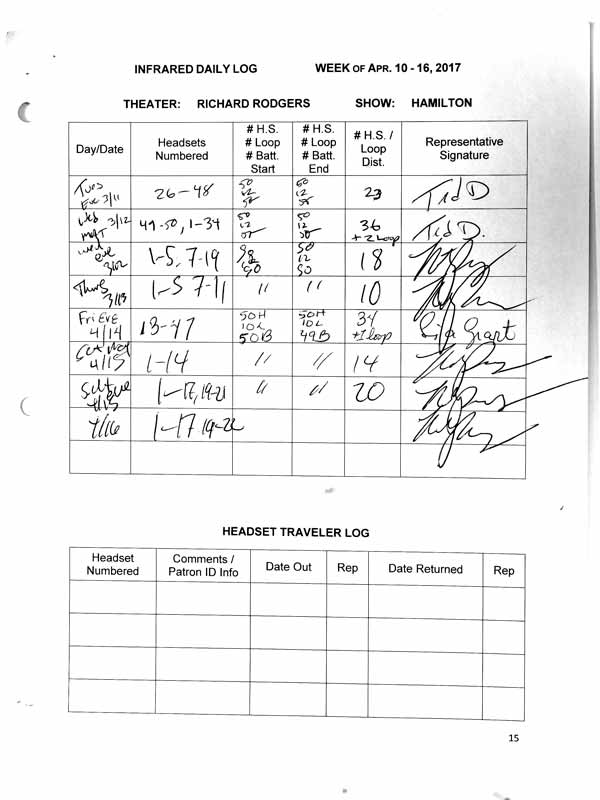 INFRARED DAILY LOG WEEK OF APR. 10 - 16, 2017
THEATER: RICHARD RODGERS SHOW: HAMILTON
Day/Date Headsets Numbered # H.S. # Loop # Batt. Start # H.S. # Loop # Batt. End # H.S. / Loop Dist. Representative Signature
Tues Eve 3/11 26-48 50 12 50 12 23 Ted D
Wed 3/12 49-50, 1-34 50 12 50 12 36 +2 Loop Ted D.
wed eve 1-5, 7-19 50 12 50 18
Thurs 3/13 1-5 7-11 " " 10
Fri EVE 4/14 13-47 50H 10L 50B 50H 10L 49B 34 +1 loop Lisa Grant
Sat Mat 4/15 1-14 " " 14
Sat Eve 4/15 1-17, 19-21 " " 20
4/16 1-17 19-22
HEADSET TRAVELER LOG
Headset Numbered Comments / Patron ID Info Date Out Rep Date Returned Rep
15